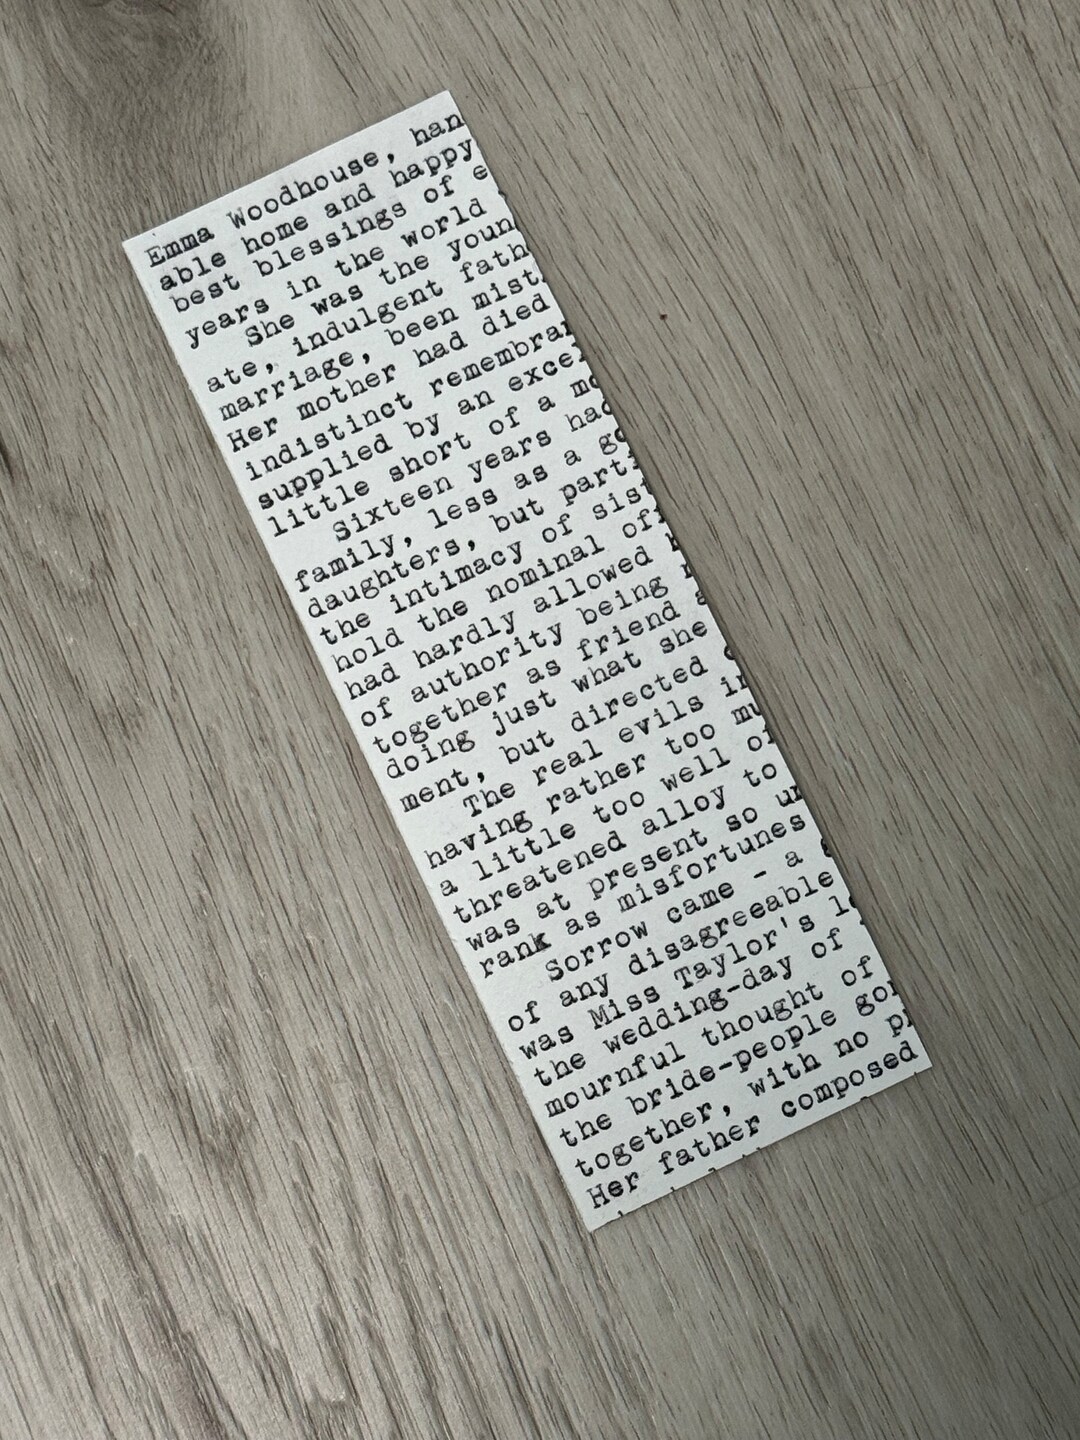 Emma Woodhouse, han
able home and happy
best blessings of e
years in the world
She was the youn
ate, indulgent fath
marriage, been mist
Her mother had died
indistinct remembran
supplied by an excel
little short of a mo
Sixteen years had
family, less as a go
daughters, but parti
the intimacy of sist
hold the nominal off
had hardly allowed h
of authority being
together as friend a
doing just what she
ment, but directed
The real evils in
having rather too mu
a little too well of
threatened alloy to
was at present so un
rank as misfortunes
Sorrow came - a g
of any disagreeable
was Miss Taylor's lo
the wedding-day of
mournful thought of
the bride-people gon
together, with no pr
Her father composed